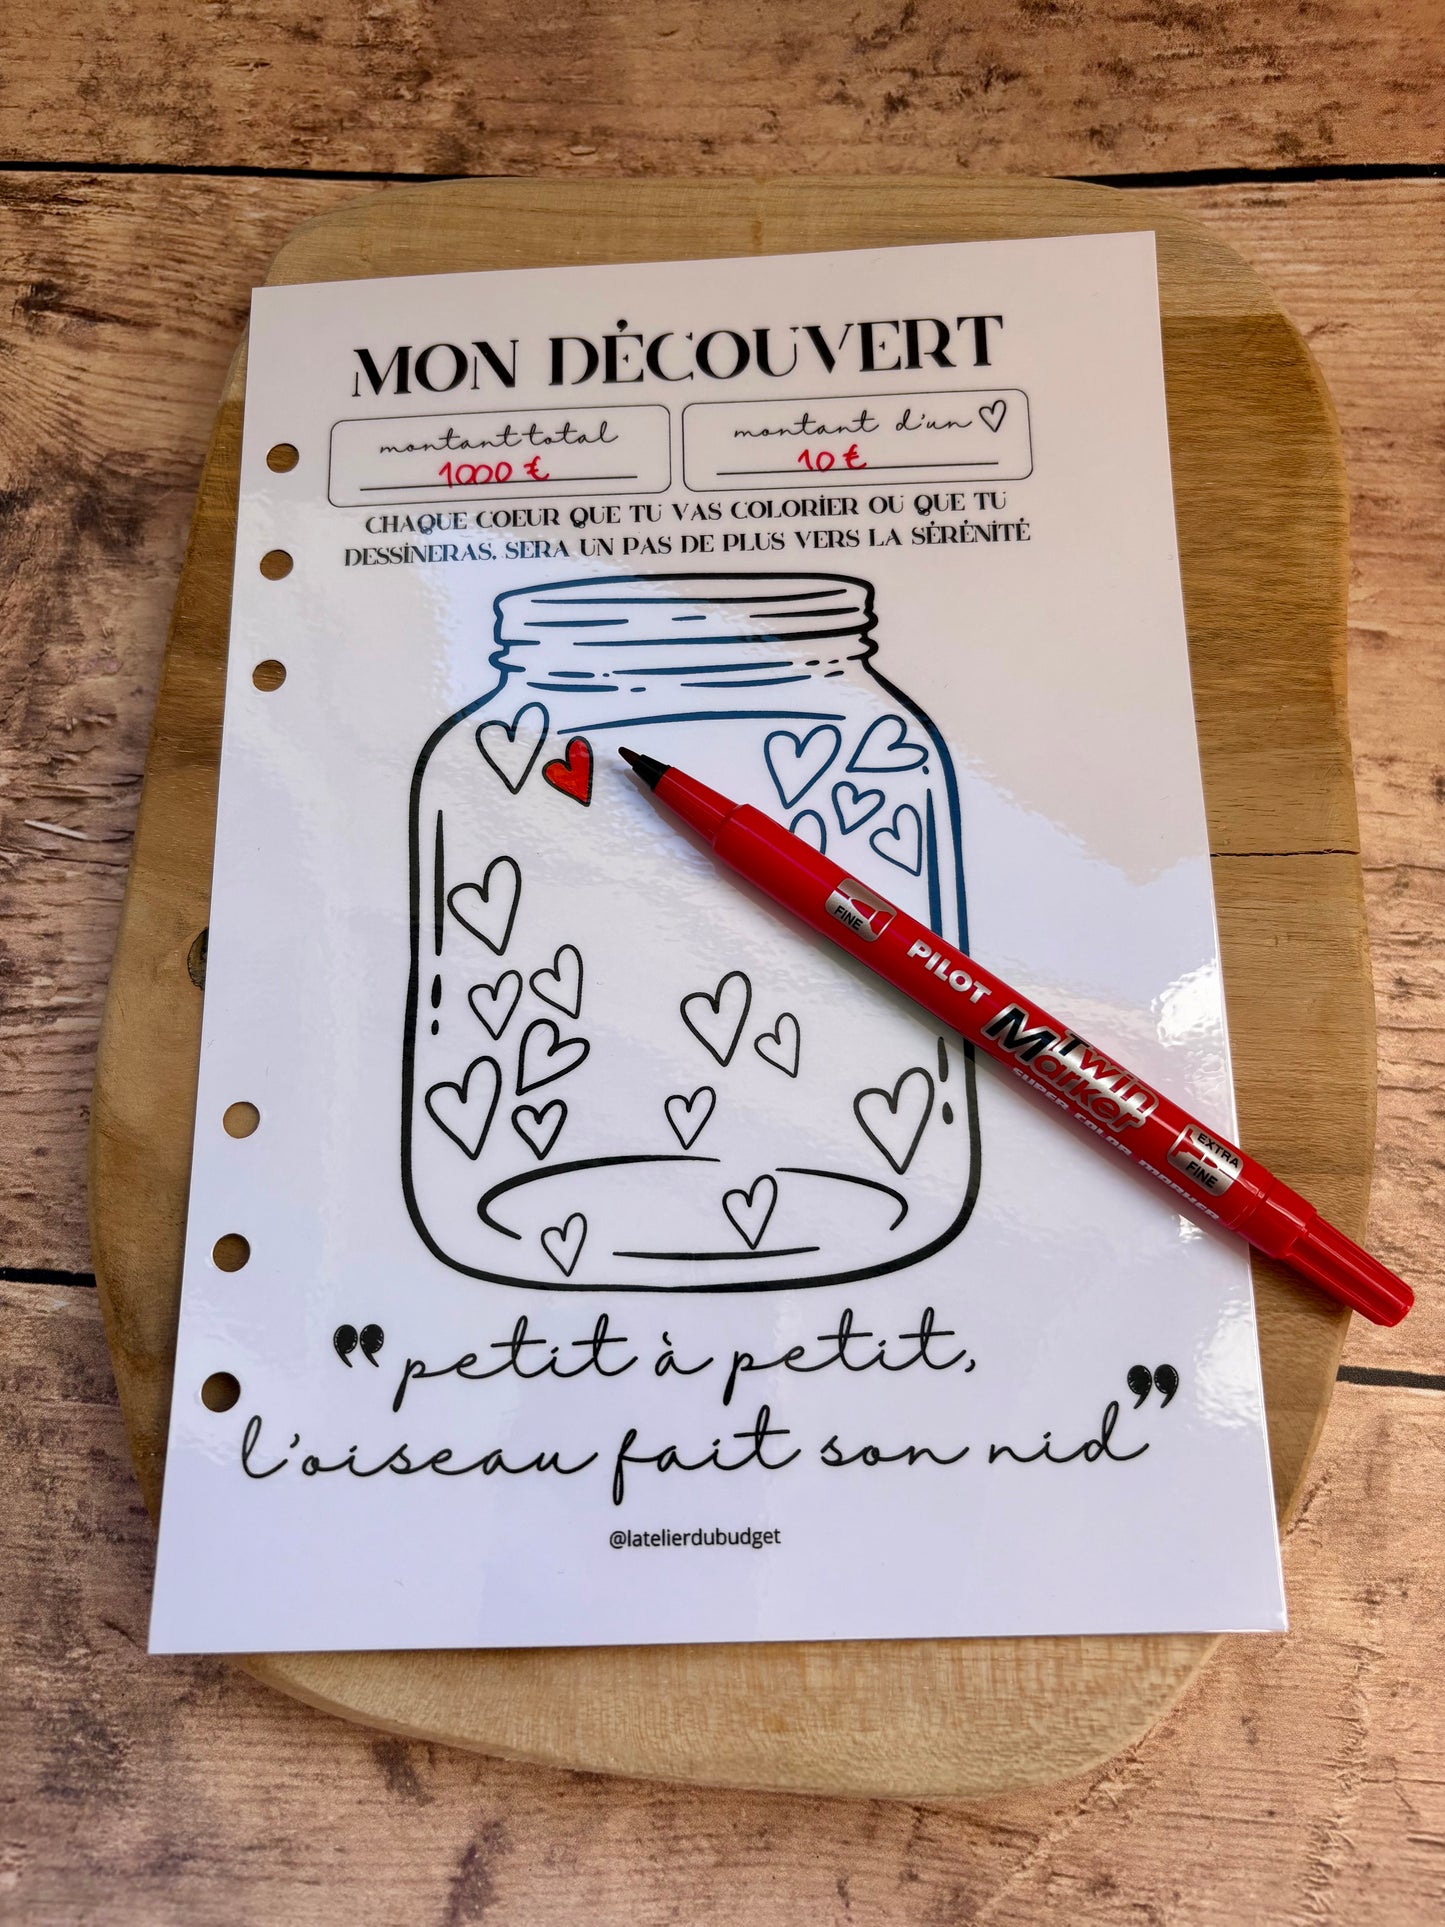 MON DÉCOUVERT
montant total
1000 €
montant d'un
10 €
CHAQUE COEUR QUE TU VAS COLORIER OU QUE TU
DESSINERAS, SERA UN PAS DE PLUS VERS LA SÉRÉNITÉ
FINE
PILOT
Twin
Marker
SUPER COLOR MARKER
EXTRA
FINE
" petit à petit,
l'oiseau fait son nid "
@latelierdubudget